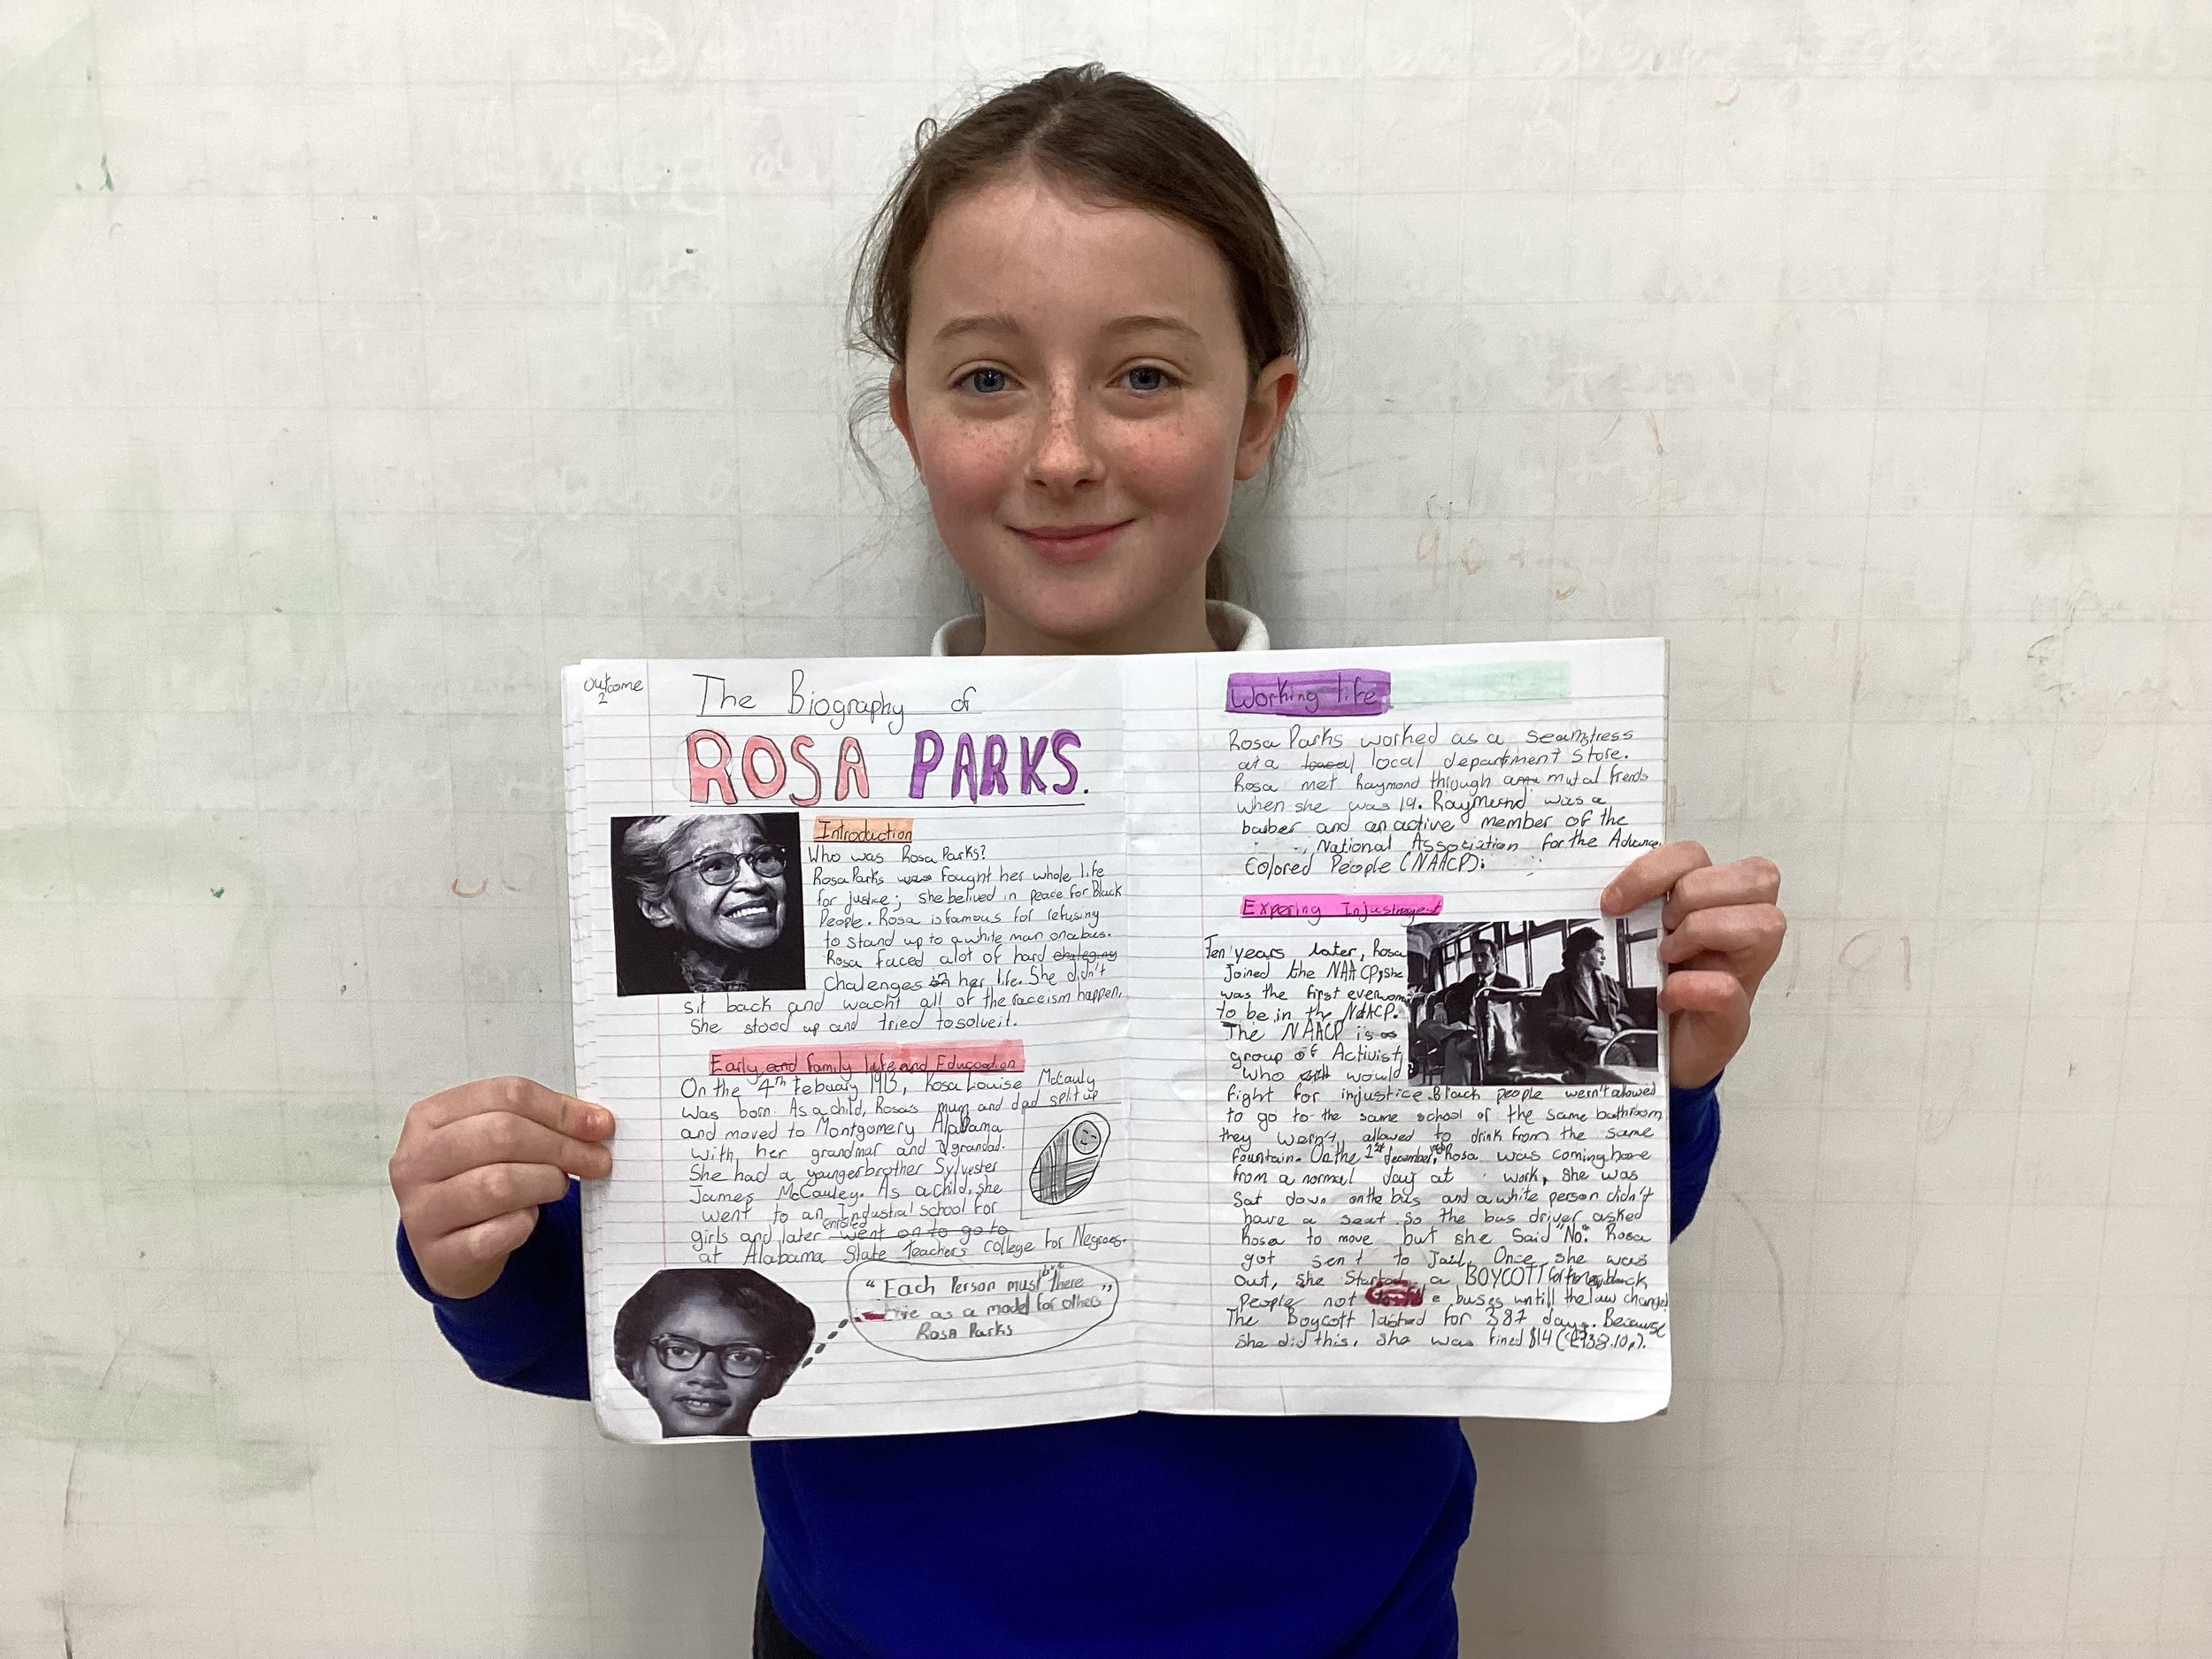 Outcome
2
The Biography of
ROSA PARKS.
Introduction
Who was Rosa Parks?
Rosa Parks was fought her whole life
for justice; she belived in peace for Black
People. Rosa is famous for refusing
to stand up to a white man on a bus.
Rosa faced alot of hard chaleging
Chalenges in her life. She didn't
sit back and wacht all of the raceism happen,
She stood up and tried to solve it.
Early and family life and Education
On the 4th Febuary 1913, Rosa Louise McCauly
was born. As a child, Rosa's mum and dad split up
and moved to Montgomery Alabama
with her grandmar and grandad.
She had a younger brother Sylvester
James McCauley. As a child, she
went to an Industial school for
girls and later enroled went on to go to
at Alabama State Teachers College for Negroes.
"Each Person must
live as a model for others"
Rosa Parks
Working life
Rosa Parks worked as a Seamstress
at a local local department Store.
Rosa met Raymond through mutal freinds
when she was 19. Raymond was a
barber and an active member of the
National Association for the Advance
Colored People (NAACP).
Expering
Ten years later, Rosa
Joined the NAACP, she
was the first ever
to be in the NAACP.
The NAACP is a
group of Activist
who would
fight for injustice. Black people wern't allowed
to go to the same school or the same bathroom,
they wern't allowed to drink from the same
fountain. On the 1st december, Rosa was coming home
from a normal day at work, she was
Sat down on the bus and a white person didn't
have a seat. So the bus driver asked
Rosa to move but she Said "No." Rosa
got sent to Jail. Once she was
out, she Started a BOYCOTT for black
People not buses untill the law changed
The Boycott lasted for 387 days. Because
She did this, she was fined $14